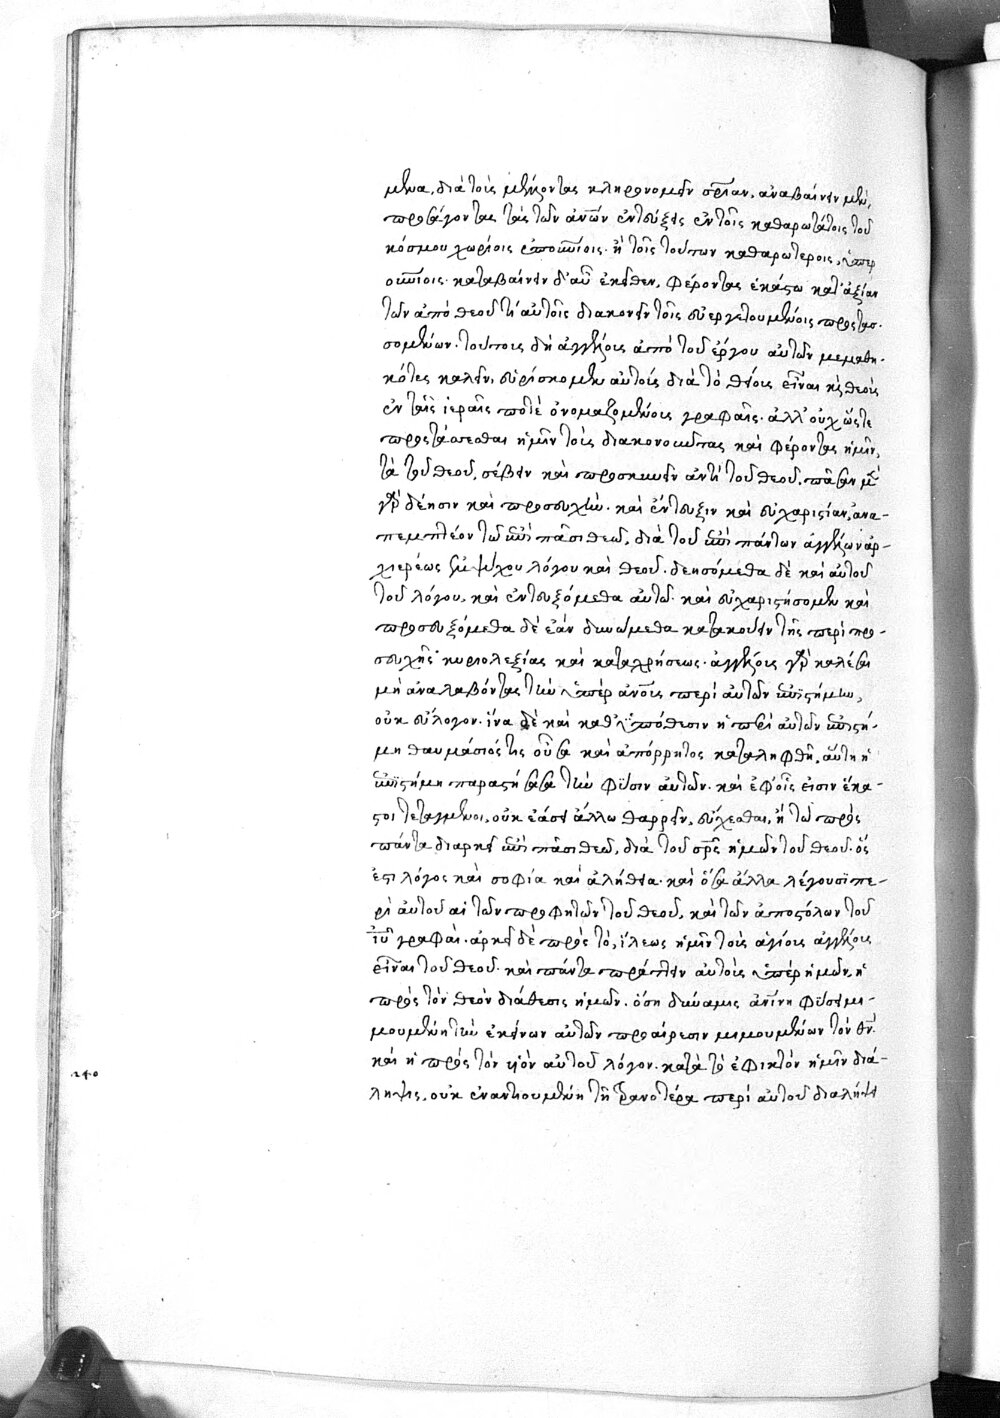 μενα, διὰ τοὺς μέλλοντας κληρονομεῖν σρίαν, ἀναβαίνειν μὲν,
προσάγοντας τὰς τῶν ἀνῶν ἐντεύξεις ἐν τοῖς καθαρωτάτοις τοῦ
κόσμου χωρίοις ἐπουνίοις· ἢ τοῖς τούτων καθαρωτέροις, ὑπερ
ουνίοις· καταβαίνειν δ' αὖ ἐκεῖθεν, φέροντας ἑκάστω κατ' ἀξίαν
τῶν ἀπὸ θεοῦ τί αὐτοῖς διακονεῖν τοῖς εὐεργετουμένοις προστασ-
σομένων. τούτους δὴ ἀγγέλους ἀπὸ τοῦ ἔργου αὐτῶν μεμαθη-
κότες καλεῖν, εὑρίσκομεν αὐτοὺς διὰ τὸ θείους εἶναι κὶ θεοὺς
ἐν ταῖς ἱεραῖς ποτὲ ὀνομαζομένους γραφαῖς. ἀλλ' οὐχ ὥστε
προστάσσεσθαι ἡμῖν τοὺς διακονοῦντας καὶ φέροντας ἡμῖν,
τὰ τοῦ θεοῦ, σέβειν καὶ προσκυνεῖν ἀντὶ τοῦ θεοῦ. πᾶσαν μὲν
γὰρ δέησιν καὶ προσευχὴν· καὶ ἔντευξιν καὶ εὐχαριστίαν, ἀνα-
πεμπτέον τῶ ἐπὶ πᾶσι θεῶ, διὰ τοῦ ἐπὶ πάντων ἀγγέλων ἀρ-
χιερέως ἐμψύχου λόγου καὶ θεοῦ. δεησόμεθα δὲ καὶ αὐτοῦ
τοῦ λόγου, καὶ ἐντευξόμεθα αὐτῶ· καὶ εὐχαριστήσομεν καὶ
προσευξόμεθα δὲ ἐὰν δυνώμεθα κατακούειν τῆς περὶ προ-
σευχῆς κυριολεξίας καὶ καταχρήσεως. ἀγγέλους γὰρ καλέσαι
μὴ ἀναλαβόντας τὴν ὑπὲρ ἀνους περὶ αὐτῶν ἐπιστήμην,
οὐκ εὔλογον. ἵνα δὲ καὶ καθ' ὑπόθεσιν ἡ περὶ αὐτῶν ἐπιστή-
μη θαυμάσιός τις οὖσα καὶ ἀπόρρητος καταληφθῆ, αὕτη ἡ
ἐπιστήμη παραστήσασα τὴν φύσιν αὐτῶν· καὶ ἐφ' οἷς εἰσιν ἕκα-
στοι τεταγμένοι, οὐκ ἐάσει ἄλλω θαρρεῖν, εὔχεσθαι, ἢ τῶ πρὸς
πάντα διαρκεῖ ἐπὶ πᾶσι θεῶ, διὰ τοῦ σρς ἡμῶν τοῦ θεοῦ. ὅς
ἐστι λόγος καὶ σοφία καὶ ἀλήθεια· καὶ ὅσα ἄλλα λέγουσι πε-
ρὶ αὐτοῦ αἱ τῶν προφητῶν τοῦ θεοῦ, καὶ τῶν ἀποστόλων τοῦ
ἰῦ γραφαὶ. ἀρκεῖ δὲ πρὸς τὸ, ἵλεως ἡμῖν τοὺς ἁγίους ἀγγέλους
εἶναι τοῦ θεοῦ· καὶ πάντα πράττειν αὐτοὺς ὑπὲρ ἡμῶν, ἡ
πρὸς τὸν θεὸν διάθεσις ἡμῶν. ὅση δύναμις ἀνίνη φύσει μι-
μουμένη τὴν ἐκείνων αὐτῶν προαίρεσιν μιμουμένων τὸν θν.
καὶ ἡ πρὸς τὸν υἱὸν αὐτοῦ λόγον· κατὰ τὸ ἐφικτὸν ἡμῖν διά-
ληψις, οὐκ ἐναντιουμένη τῆ τρανοτέρα περὶ αὐτοῦ διαλήψει
240